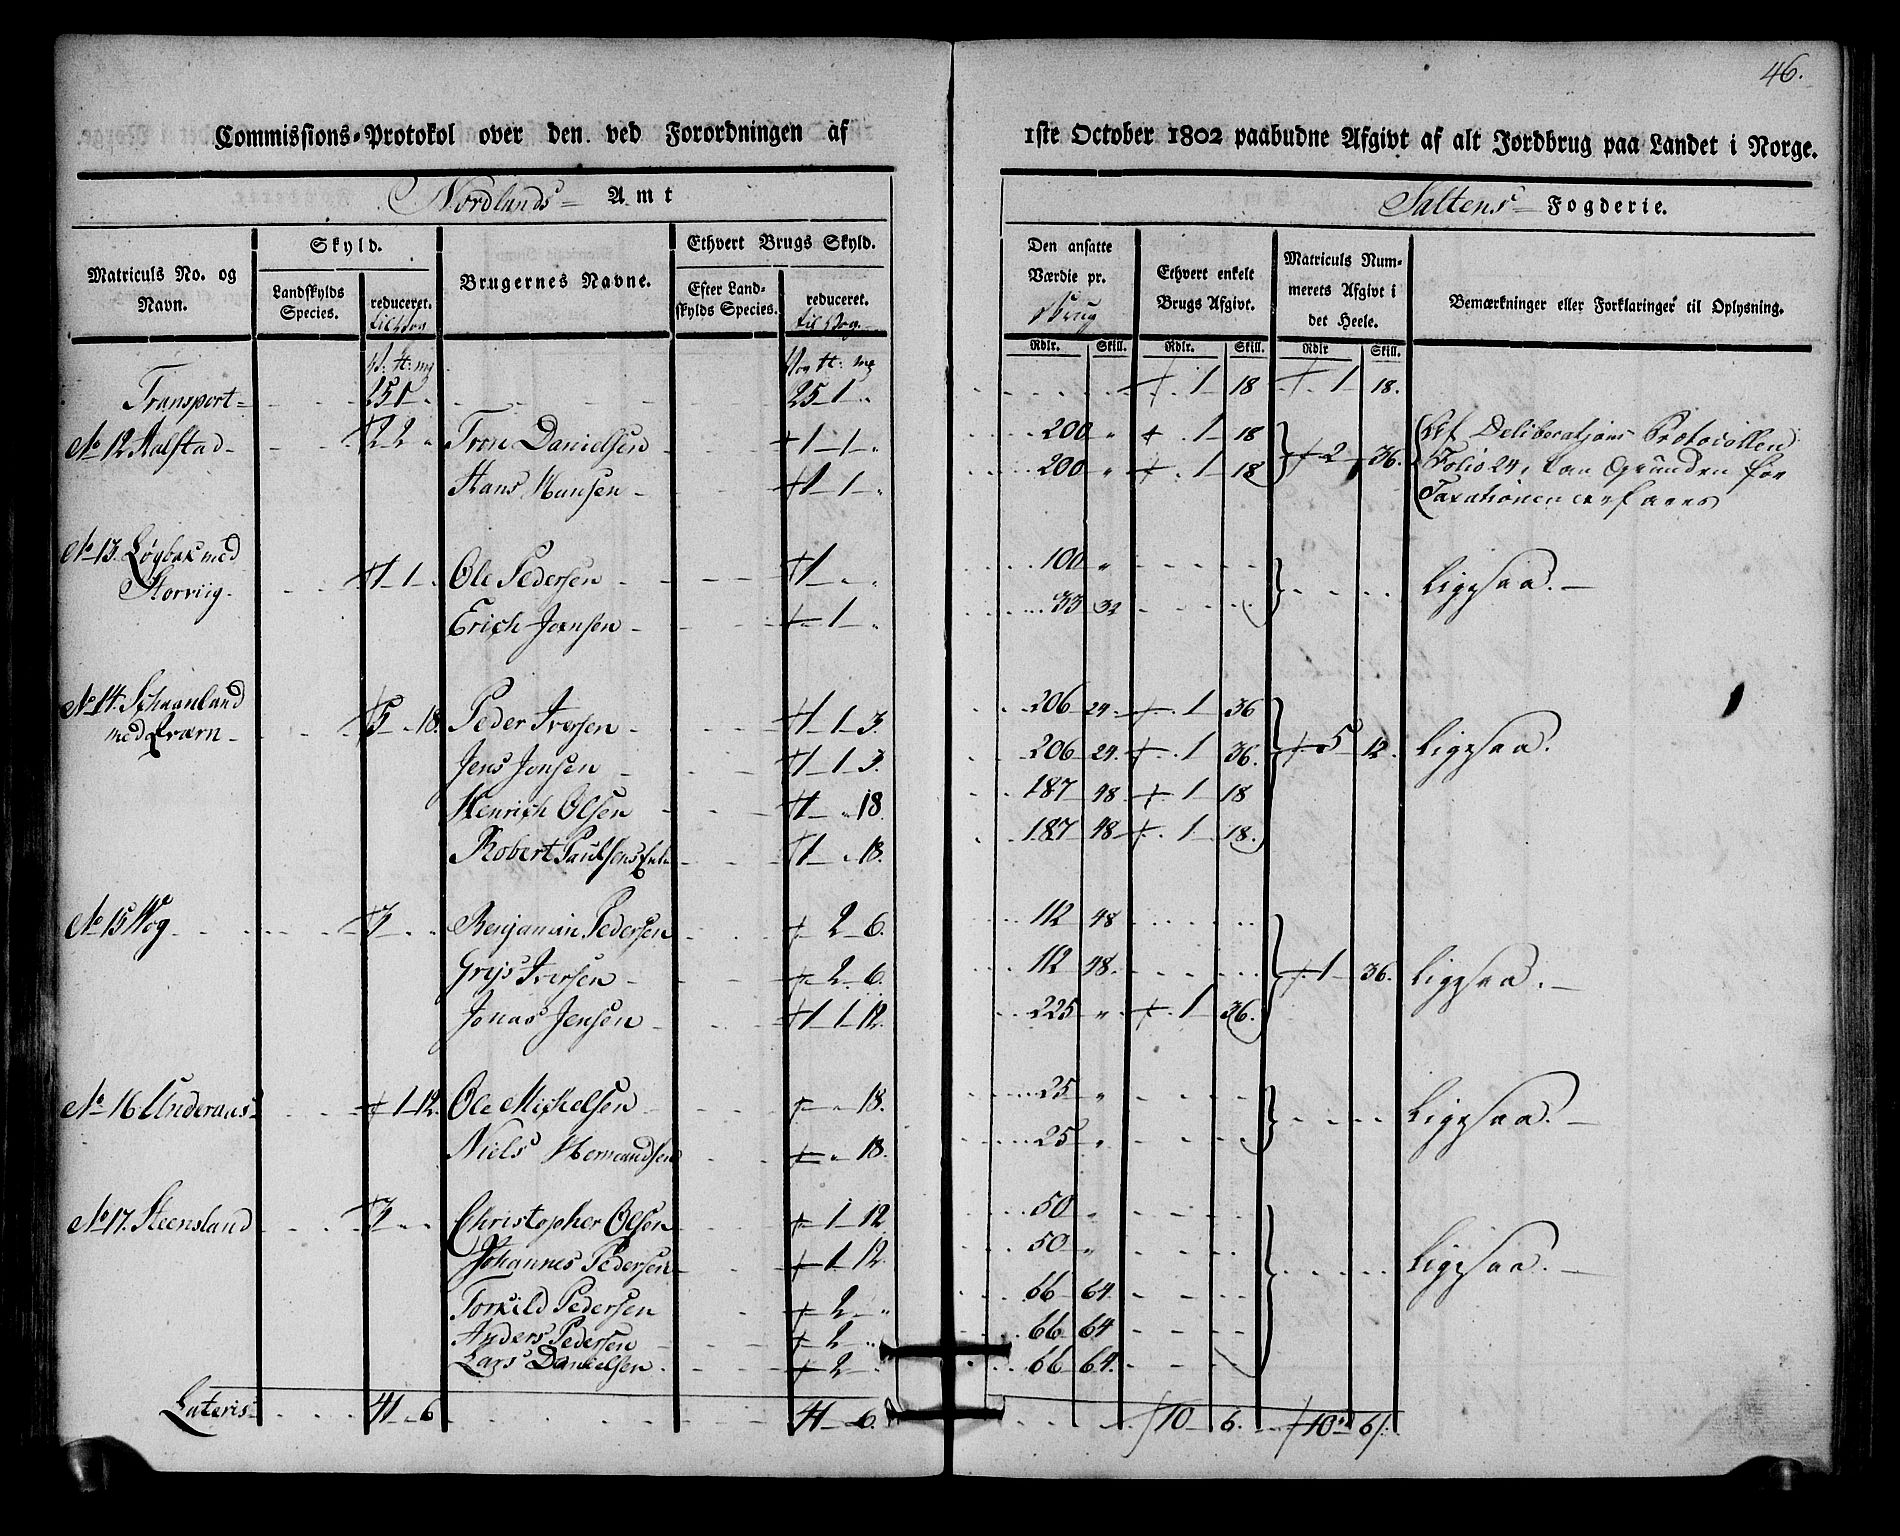 46.
Commissions-Protokol over den ved Forordningen af 1ste October 1802 paabudne Afgivt af alt Jordbrug paa Landet i Norge.
Nordlands Amt
Saltens Fogderie.
Matriculs No. og Navn.
Skyld.
Landskylds Species.
reduceret.
Brugernes Navne.
Ethvert Brugs Skyld.
Efter Landskylds Species.
reduceret.
til Vog.
Den ansatte Værdie pr. Brug
Ethvert enkelt Brugs Afgivt.
Matriculs Nummerets Afgivt i det Heele.
Bemærkninger eller Forklaringer til Oplysning.
Rdlr. Skill. Rdlr. Skill. Rdlr Skill.
Transport 25 1 25 1 1 18 1 18.
No 12 Halstad 2 2 Tron Danielsen 1 1 200 1 18 2 36. Deliberations Protocollen
Hans Hansen 1 1 200 1 18 Folio 24, kan Grunden for
Taxationen erfares
No 13. Løgbak med
Storviig 1 1 Ole Pedersen 1 100 Ligesaa.
Erich Jonsen 1 33 32
No 14. Schaanland
med Qværn 5 18. Peder Iversen 1 1 3. 206 24 1 36
Jens Jonsen 1 1 3. 206 24. 1 36. 5 12. Ligesaa.
Henrich Olsen 1 18. 187 48 1 18
Robert Paulsens Enke 1 18. 187 48 1 18.
No 15 Wog Benjamin Pedersen 2 6. 112 48
Iversen 2 6. 112 48. 1 36. Ligesaa.
Jonas Jensen 1 1 12. 225 1 36.
No 16 Underaas 1 12. Ole Michelsen 18. 25 Ligesaa.
Niels 18. 25
No 17. Steensland Christopher Olsen 1 12 50
Johannes Pedersen 1 12. 50 Ligesaa.
Torkild Pedersen 2 66 64.
Anders Pedersen 2 66 64
Lars Danielsen 2 66 64.
Lateris 41 6 41 6. 10 6. 10 6